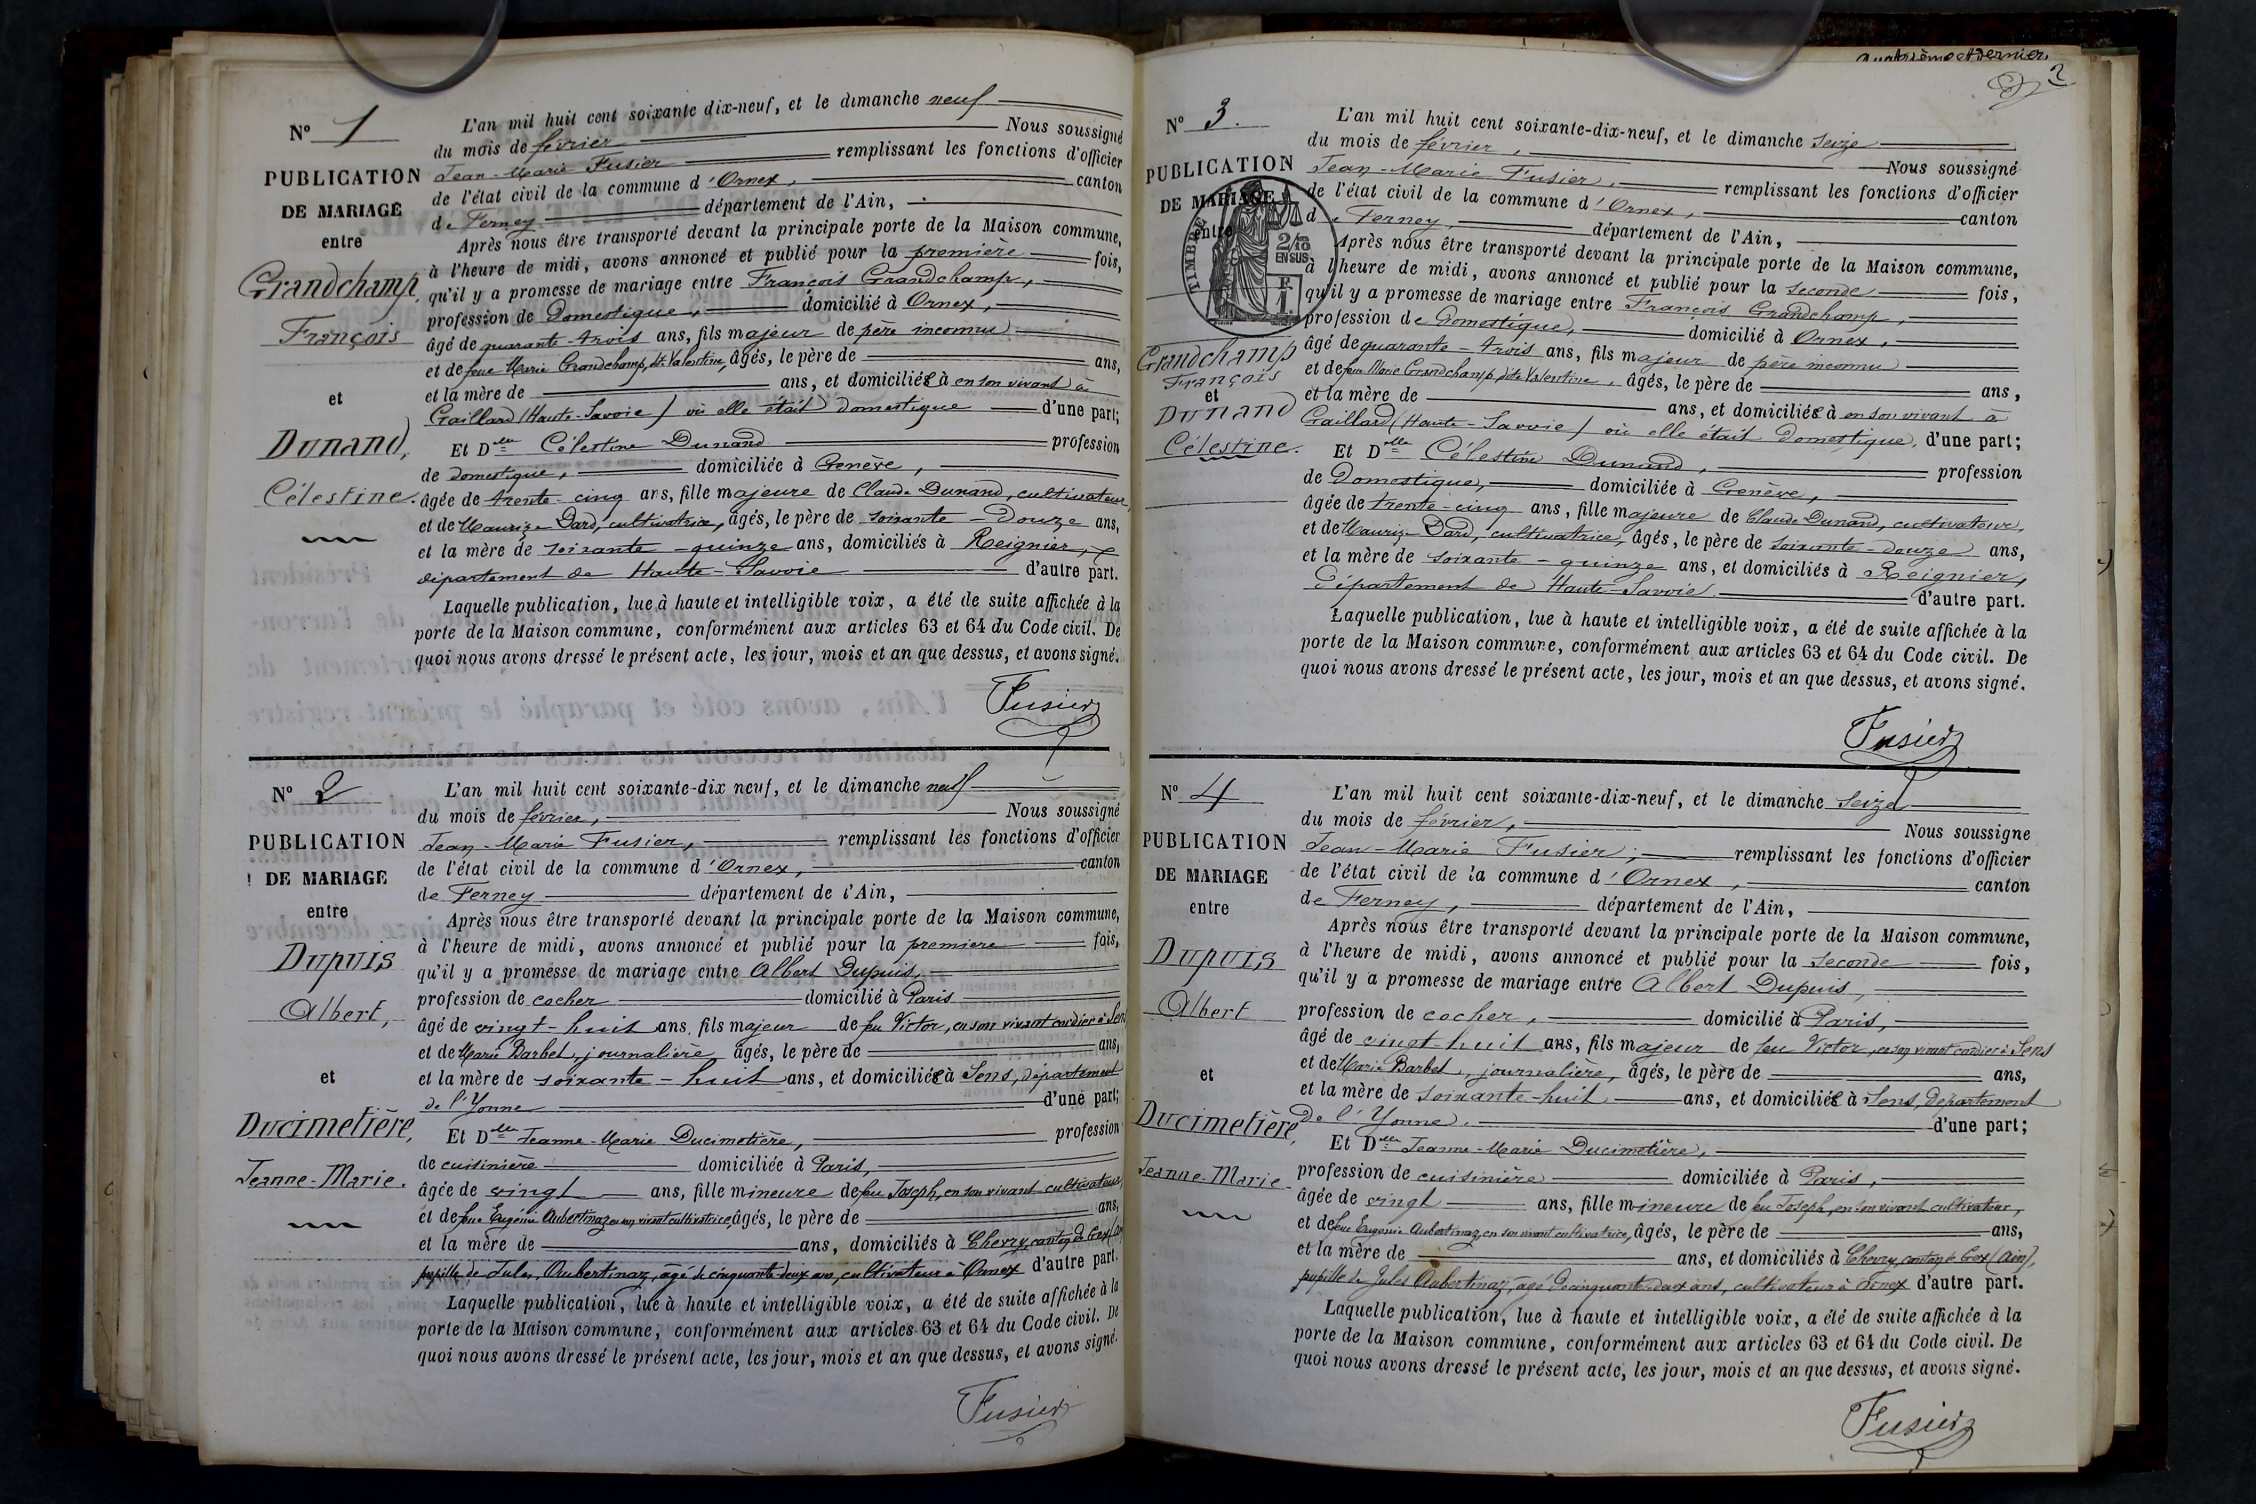 N° 1
PUBLICATION
DE MARIAGE
entre
Grandchamp,
François
et
Dunand,
Célestine.
L'an mil huit cent soixante dix-neuf, et le dimanche neuf
du mois de février Nous soussigné
Jean-Marie Fusier remplissant les fonctions d'officier
de l'état civil de la commune d'Ornex, canton
de Ferney département de l'Ain,
Après nous être transporté devant la principale porte de la Maison commune,
à l'heure de midi, avons annoncé et publié pour la première fois,
qu'il y a promesse de mariage entre François Grandchamp,
profession de Domestique, domicilié à Ornex,
âgé de quarante-trois ans, fils majeur de père inconnu
et de feue Marie Grandchamp, dite Valentine, âgés, le père de ans,
et la mère de ans, et domiciliée à en son vivant à
Gaillard (Haute-Savoie) où elle était domestique d'une part;
Et Dlle Célestine Dunand profession
de domestique, domiciliée à Genève,
âgée de trente-cinq ans, fille majeure de Claude Dunand, cultivateur,
et de Maurize Dard, cultivatrice, âgés, le père de soixante-douze ans,
et la mère de soixante-quinze ans, domiciliés à Reignier,
département de Haute-Savoie d'autre part.
Laquelle publication, lue à haute et intelligible voix, a été de suite affichée à la
porte de la Maison commune, conformément aux articles 63 et 64 du Code civil. De
quoi nous avons dressé le présent acte, les jour, mois et an que dessus, et avons signé.
Fusier
N° 2
PUBLICATION
DE MARIAGE
entre
Dupuis
Albert,
et
Ducimetière,
Jeanne-Marie.
L'an mil huit cent soixante-dix neuf, et le dimanche neuf
du mois de février, Nous soussigné
Jean-Marie Fusier, remplissant les fonctions d'officier
de l'état civil de la commune d'Ornex, canton
de Ferney département de l'Ain,
Après nous être transporté devant la principale porte de la Maison commune,
à l'heure de midi, avons annoncé et publié pour la première fois,
qu'il y a promesse de mariage entre Albert Dupuis,
profession de cocher domicilié à Paris
âgé de vingt-huit ans, fils majeur de feu Victor, en son vivant cordier à Sens
et de Marie Barbet, journalière, âgés, le père de ans,
et la mère de soixante-huit ans, et domiciliée à Sens, département
de l'Yonne d'une part;
Et Dlle Jeanne-Marie Ducimetière, profession
de cuisinière domiciliée à Paris,
âgée de vingt ans, fille mineure de feu Joseph, en son vivant cultivateur,
et de feue Eugénie Aubertinaz en son vivant cultivatrice, âgés, le père de ans,
et la mère de ans, domiciliés à Chevry, canton de Gex (Ain)
pupille de Jules Aubertinaz, âgé de cinquante-deux ans, cultivateur à Ornex d'autre part.
Laquelle publication, lue à haute et intelligible voix, a été de suite affichée à la
porte de la Maison commune, conformément aux articles 63 et 64 du Code civil. De
quoi nous avons dressé le présent acte, les jour, mois et an que dessus, et avons signé.
Fusier
quatrième et dernier.
2
N° 3.
PUBLICATION
DE MARIAGE
entre
TIMBRE
2/10
EN SUS
Grandchamp
François
et
Dunand
Célestine.
L'an mil huit cent soixante-dix-neuf, et le dimanche seize
du mois de février, Nous soussigné
Jean-Marie Fusier, remplissant les fonctions d'officier
de l'état civil de la commune d'Ornex, canton
de Ferney, département de l'Ain,
Après nous être transporté devant la principale porte de la Maison commune,
à l'heure de midi, avons annoncé et publié pour la seconde fois,
qu'il y a promesse de mariage entre François Grandchamp,
profession de Domestique, domicilié à Ornex,
âgé de quarante-trois ans, fils majeur de père inconnu
et de feue Marie Grandchamp, dite Valentine, âgés, le père de ans,
et la mère de ans, et domiciliée à en son vivant à
Gaillard (Haute-Savoie) où elle était Domestique, d'une part;
Et Dlle Célestine Dunand, profession
de Domestique, domiciliée à Genève,
âgée de trente-cinq ans, fille majeure de Claude Dunand, cultivateur,
et de Maurize Dard, cultivatrice, âgés, le père de soixante-douze ans,
et la mère de soixante-quinze ans, et domiciliés à Reignier,
Département de Haute-Savoie d'autre part.
Laquelle publication, lue à haute et intelligible voix, a été de suite affichée à la
porte de la Maison commune, conformément aux articles 63 et 64 du Code civil. De
quoi nous avons dressé le présent acte, les jour, mois et an que dessus, et avons signé.
Fusier
N° 4
PUBLICATION
DE MARIAGE
entre
Dupuis
Albert
et
Ducimetière,
Jeanne-Marie
L'an mil huit cent soixante-dix-neuf, et le dimanche seize
du mois de février, Nous soussigne
Jean-Marie Fusier, remplissant les fonctions d'officier
de l'état civil de la commune d'Ornex, canton
de Ferney, département de l'Ain,
Après nous être transporté devant la principale porte de la Maison commune,
à l'heure de midi, avons annoncé et publié pour la seconde fois,
qu'il y a promesse de mariage entre Albert Dupuis,
profession de cocher, domicilié à Paris,
âgé de vingt-huit ans, fils majeur de feu Victor, en son vivant cordier à Sens
et de Marie Barbet, journalière, âgés, le père de ans,
et la mère de soixante-huit ans, et domiciliée à Sens, département
De l'Yonne. d'une part;
Et Dlle Jeanne-Marie Ducimetière,
profession de cuisinière domiciliée à Paris,
âgée de vingt ans, fille mineure de feu Joseph, en son vivant cultivateur,
et de feue Eugénie Aubertinaz, en son vivant cultivatrice, âgés, le père de ans,
et la mère de ans, et domiciliés à Chevry, canton de Gex (Ain),
pupille de Jules Aubertinaz, âgé de cinquante-deux ans, cultivateur à Ornex d'autre part.
Laquelle publication, lue à haute et intelligible voix, a été de suite affichée à la
porte de la Maison commune, conformément aux articles 63 et 64 du Code civil. De
quoi nous avons dressé le présent acte, les jour, mois et an que dessus, et avons signé.
Fusier